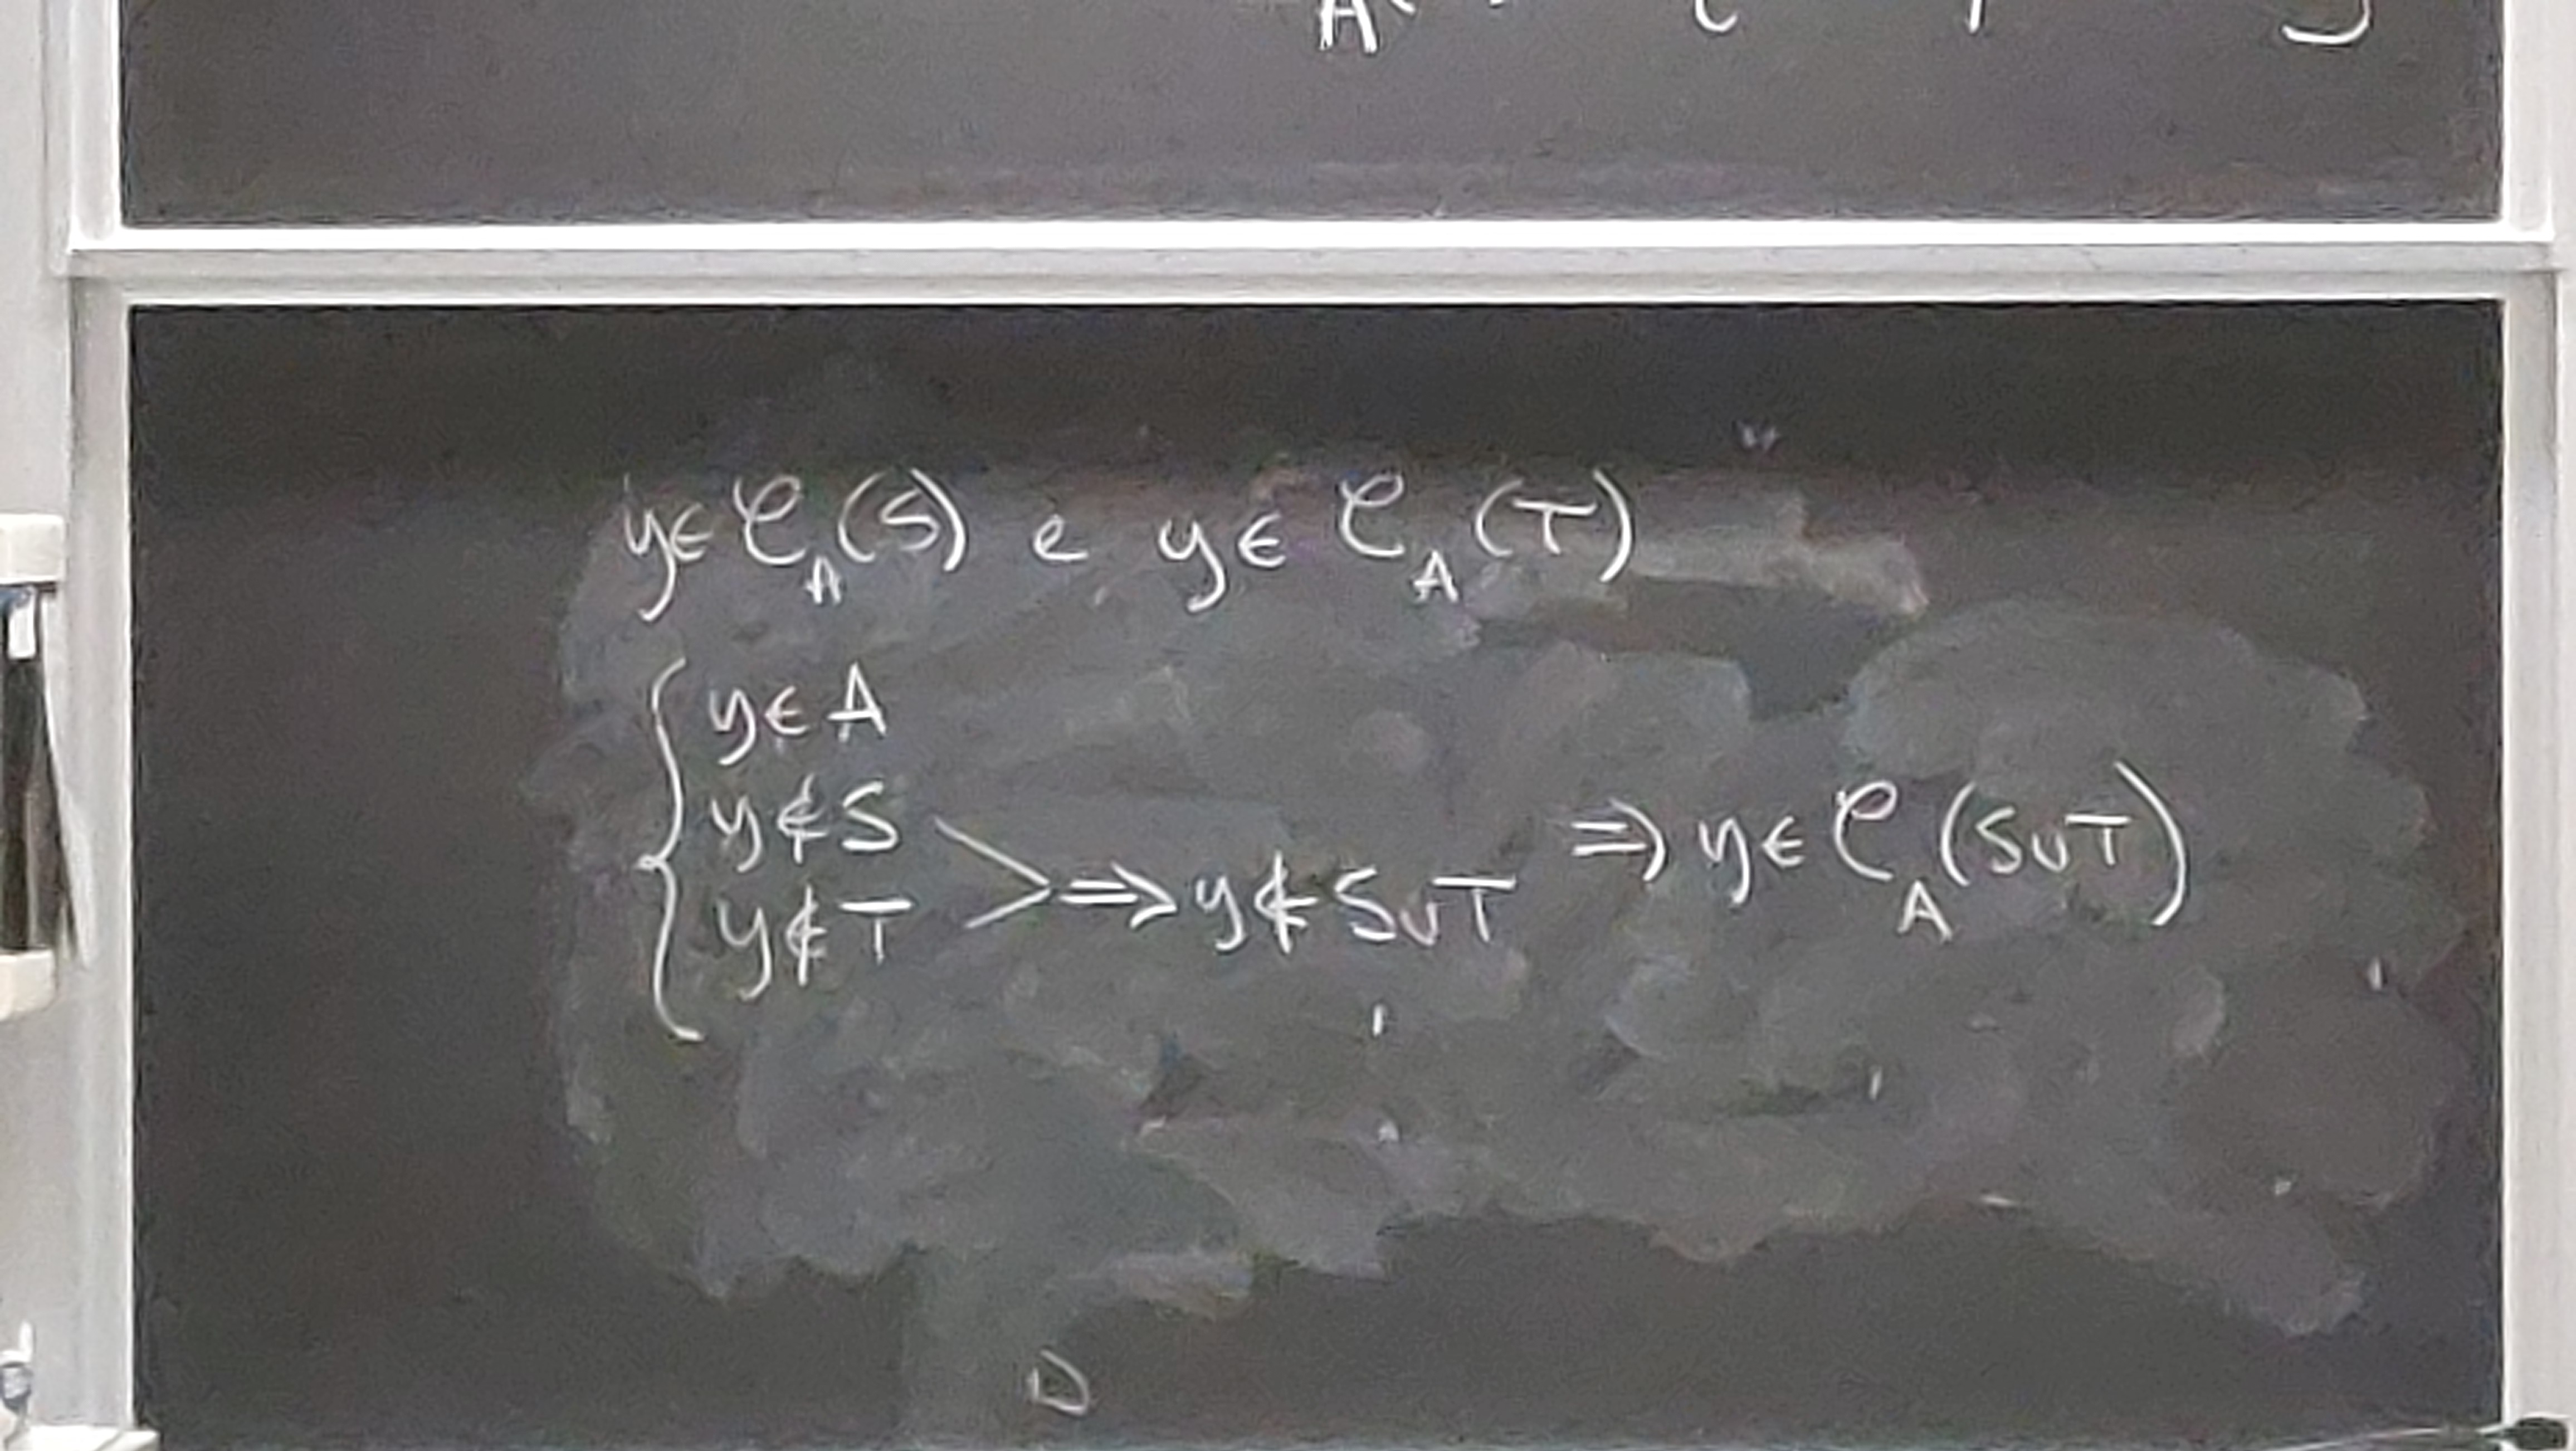 y∈𝒞_A(S) e y∈𝒞_A(T)
y∈A
y∉S
y∉T ⇒ y∉S∪T ⇒ y∈𝒞_A(S∪T)